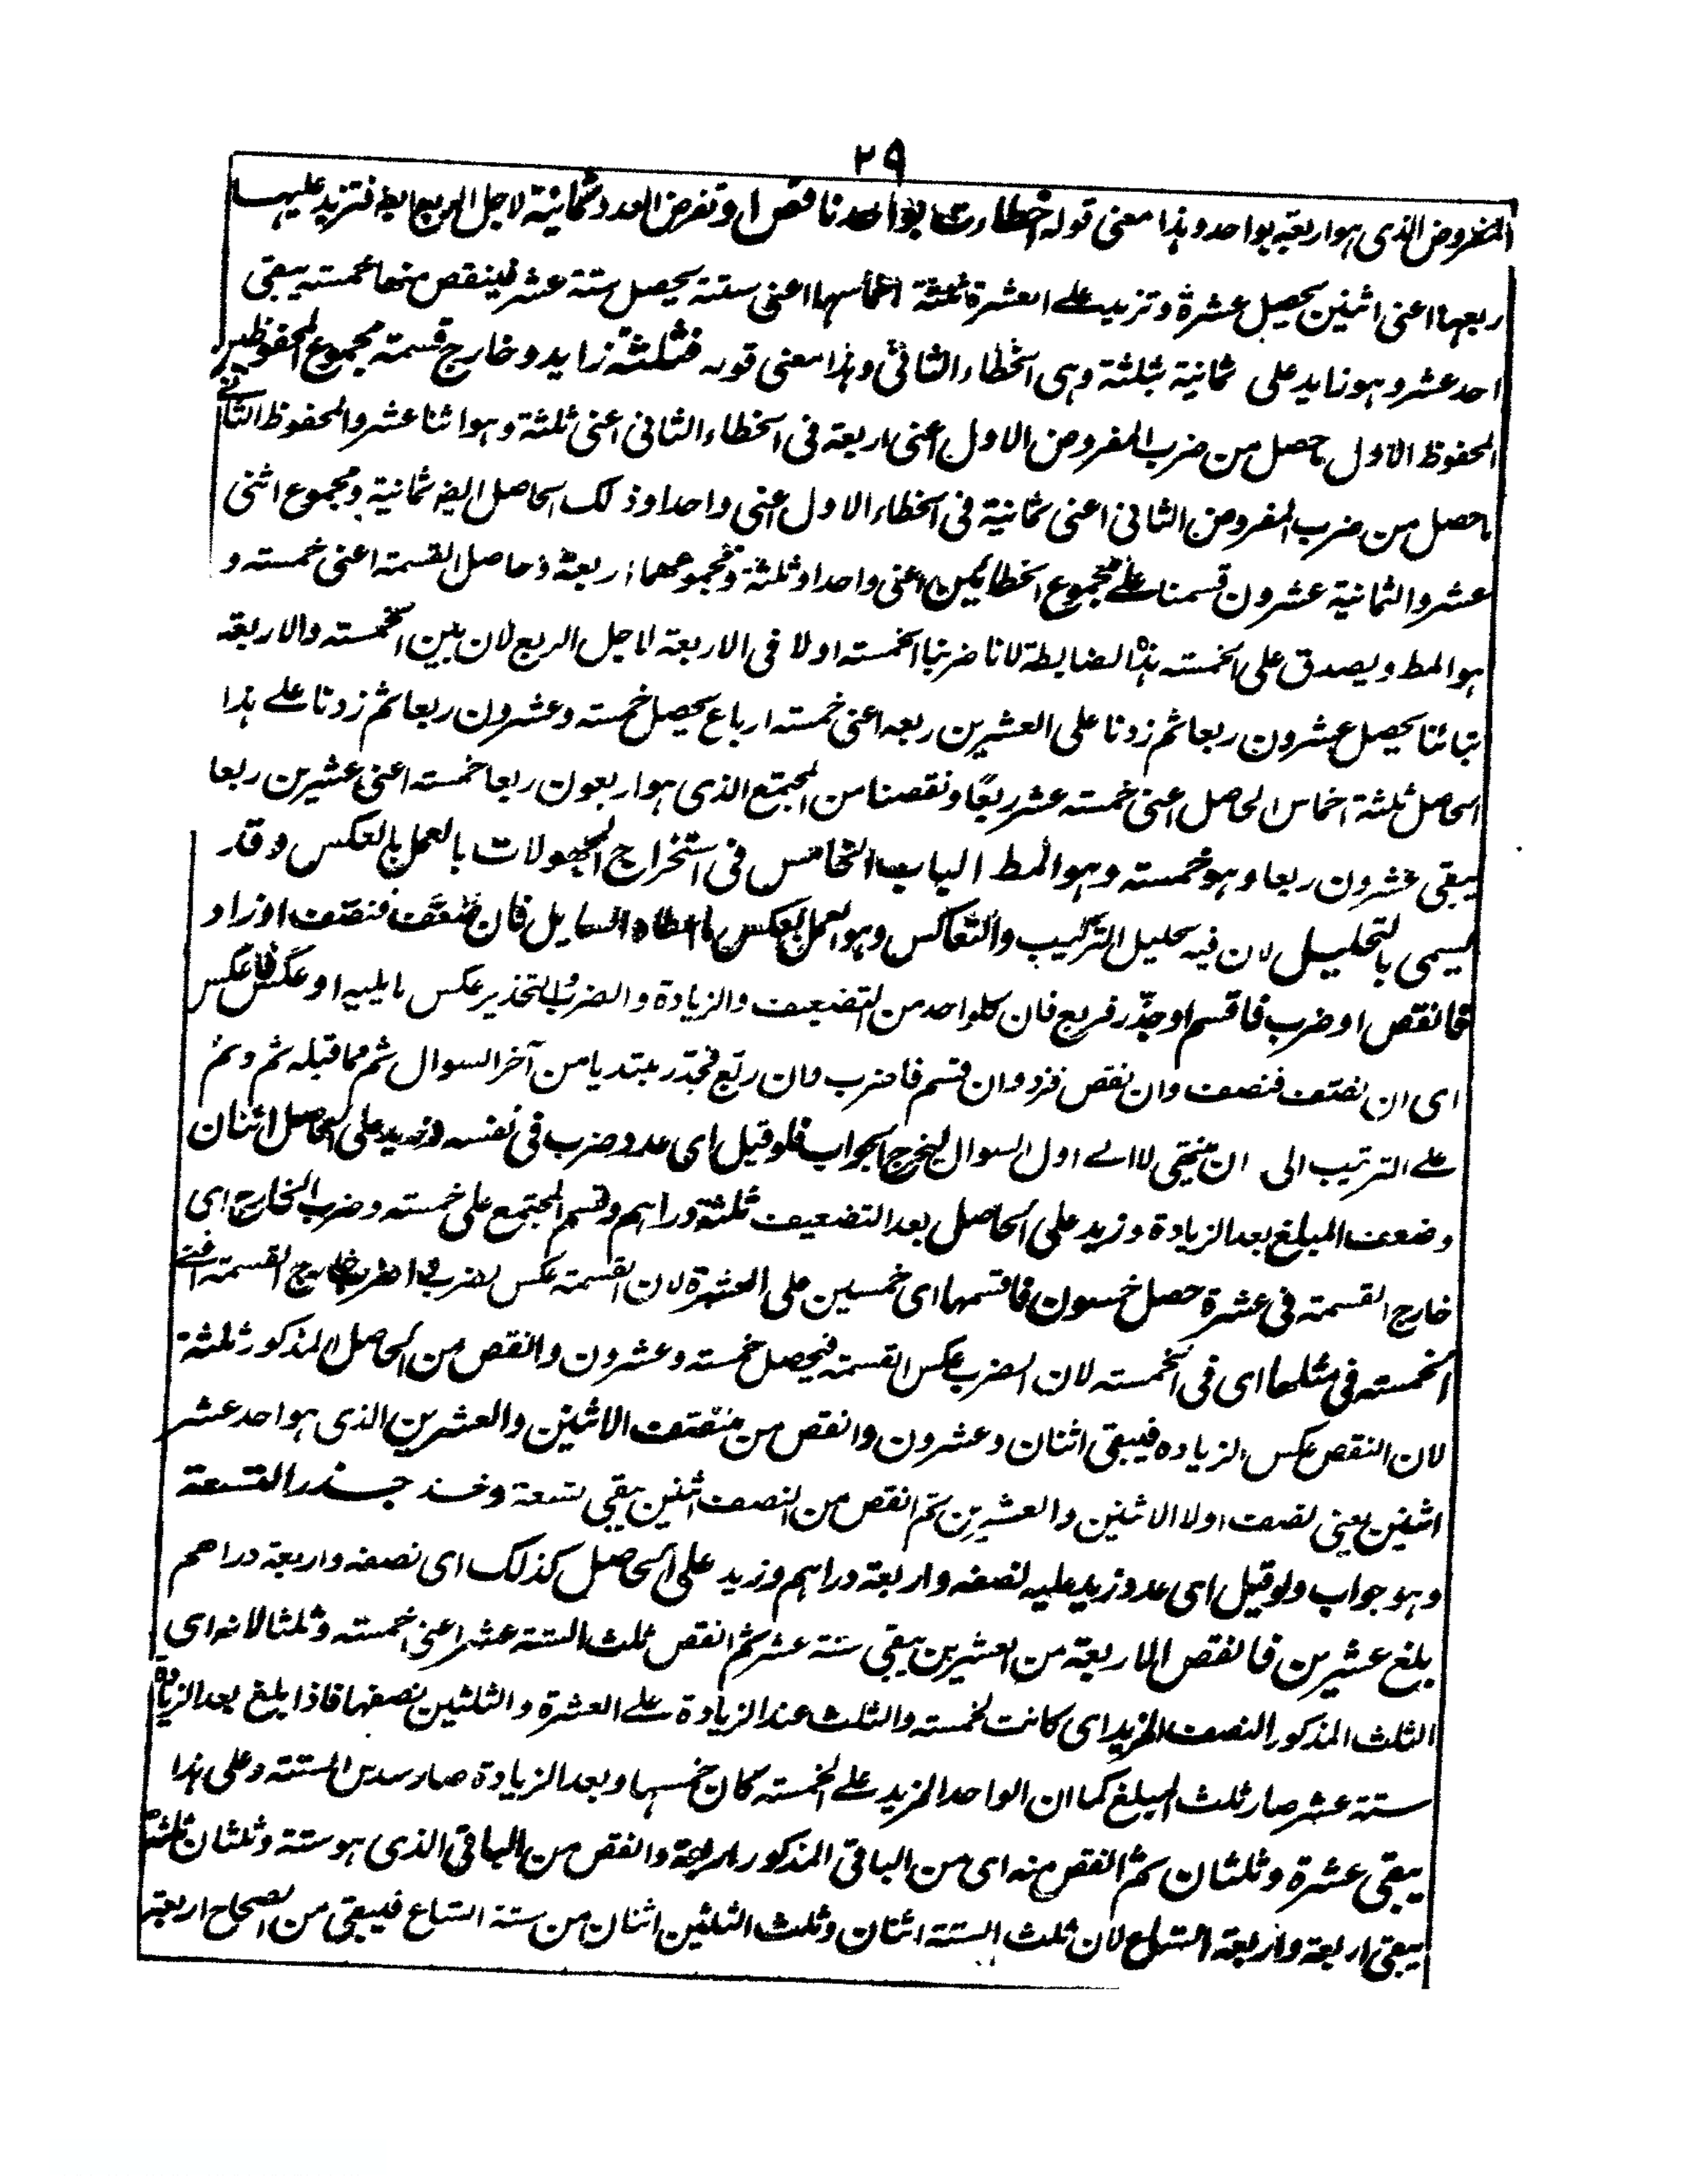 ٢٩
المفروض الذى هو اربعة بواحد وهذا معنى قوله اخطاءت بواحد ناقص او تفرض العدد ثمانية لاجل الربع ايضا فتزيد عليها
ربعها اعنى اثنين يحصل عشرة وتزيد على العشرة ثلثة اخماسها اعنى ستة يحصل ستة عشر فينقص منها خمسة يبقى
احد عشر وهو زايد على ثمانية بثلثة وهى الخطاء الثانى وهذا معنى قوله فثلثة زايد وخارج قسمة مجموع المحفوظين
المحفوظ الاول ما حصل من ضرب المفروض الاول اعنى اربعة فى الخطاء الثانى اعنى ثلثة وهو اثنا عشر والمحفوظ الثانى
ما حصل من ضرب المفروض الثانى اعنى ثمانية فى الخطاء الاول اعنى واحدا وذلك الحاصل ايضا ثمانية ومجموع اثنى
عشر والثمانية عشرون قسمنا على مجموع الخطائين اعنى واحدا وثلثة ومجموعهما اربعة فحاصل القسمة اعنى خمسة و
هو المط ويصدق على الخمسة هذه الضابطة لانا ضربنا الخمسة اولا فى الاربعة لاجل الربع لان بين الخمسة والاربعة
تبائنا يحصل عشرون ربعا ثم زدنا على العشرين ربعه اعنى خمسة ارباع يحصل خمسة وعشرون ربعا ثم زدنا على هذا
الحاصل ثلثة اخماس الحاصل اعنى خمسة عشر ربعًا ونقصنا من المجتمع الذى هو اربعون ربعا خمسة اعنى عشرين ربعا
يبقى عشرون ربعا وهو خمسة وهو المط الباب الخامس فى استخراج المجهولات بالعمل بالعكس وقد
يسمى بالتحليل لان فيه تحليل التركيب والتعاكس وهو العمل بعكس ما اعطاه السايل فان ضعّف فنصف او زاد
فانقص او ضرب فاقسم او جذّر فربع فان كلواحد من التضعيف والزيادة والضرب والتجذير عكس ما يليه او عكس فاعكس
اى ان نصّف فضعف وان نقص فزد وان قسم فاضرب وان ربّع فجذّر مبتديا من آخر السوال ثم مما قبله ثم وثم
على الترتيب الى ان ينتهى لا الى اول السوال ليخرج الجواب فلو قيل اى عدد ضرب فى نفسه وزيد على الحاصل اثنان
وضعف المبلغ بعد الزيادة وزيد على الحاصل بعد التضعيف ثلثة دراهم وقسم المجتمع على خمسة وضرب الخارج اى
خارج القسمة فى عشرة حصل خمسون فاقسمها اى خمسين على العشرة لان القسمة عكس الضرب واضرب خارج القسمة اعنى
الخمسة فى مثلها اى فى الخمسة لان الضرب عكس القسمة فيحصل خمسة وعشرون وانقص من الحاصل المذكور ثلثة
لان النقص عكس الزيادة فيبقى اثنان وعشرون وانقص من منصّف الاثنين والعشرين الذى هو احد عشر
اثنين يعنى نصف اولا الاثنين والعشرين ثم انقص من النصف اثنين يبقى تسعة وخذ جذر التسعة
وهو جواب ولو قيل اى عدد زيد عليه نصفه واربعة دراهم وزيد على الحاصل كذلك اى نصفه واربعة دراهم
بلغ عشرين فانقص الاربعة من العشرين يبقى ستة عشر ثم انقص ثلث الستة عشر اعنى خمسة وثلثا لانه اى
الثلث المذكور النصف المزيد اى كانت الخمسة والثلث عند الزيادة على العشرة والثلثين نصفها فاذا بلغ بعد الزيادة
ستة عشر صار ثلث المبلغ كما ان الواحد المزيد على الخمسة كان خمسها وبعد الزيادة صار سدس الستة وعلى هذا
يبقى عشرة وثلثان ثم انقص منه اى من الباقى المذكور اربعة وانقص من الباقى الذى هو ستة وثلثان ثلثه
يبقى اربعة واربعة اتساع لان ثلث الستة اثنان وثلث الثلثين اثنان من ستة اتساع فيبقى من الصحاح اربعة